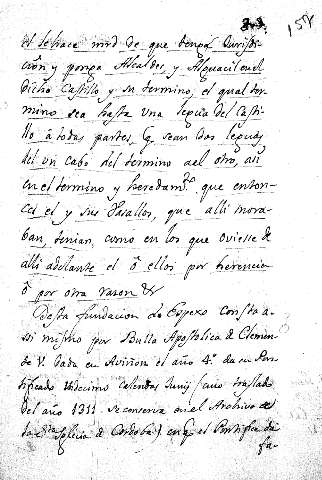 158
el se hace mrd de que tenga Jurisdi-
cion y ponga Alcaldes, y Alguacil en el
dicho Castillo y su termino, el qual ter-
mino sea hasta una legua del Casti-
llo à todas partes, q sean dos leguas
del un cabo del termino al otro, asi
en el termino y heredam.to que enton-
ces el y sus Vasallos, que alli mora-
ban, tenian, como en los que oviesse de
alli adelante el ò ellos por herencia
ò por otra razon &
Desta fundacion de Espexo consta a-
si mismo por Bulla Apostolica de Clemen-
te V. dada en Aviñon el año 4.º de su Pon-
tificado Undecimo Calendas Junij (cuio traslado
del año 1311. se conserva en el Archivo de
la Sta Iglesia de Cordoba) en q el Pontifice da
fa-